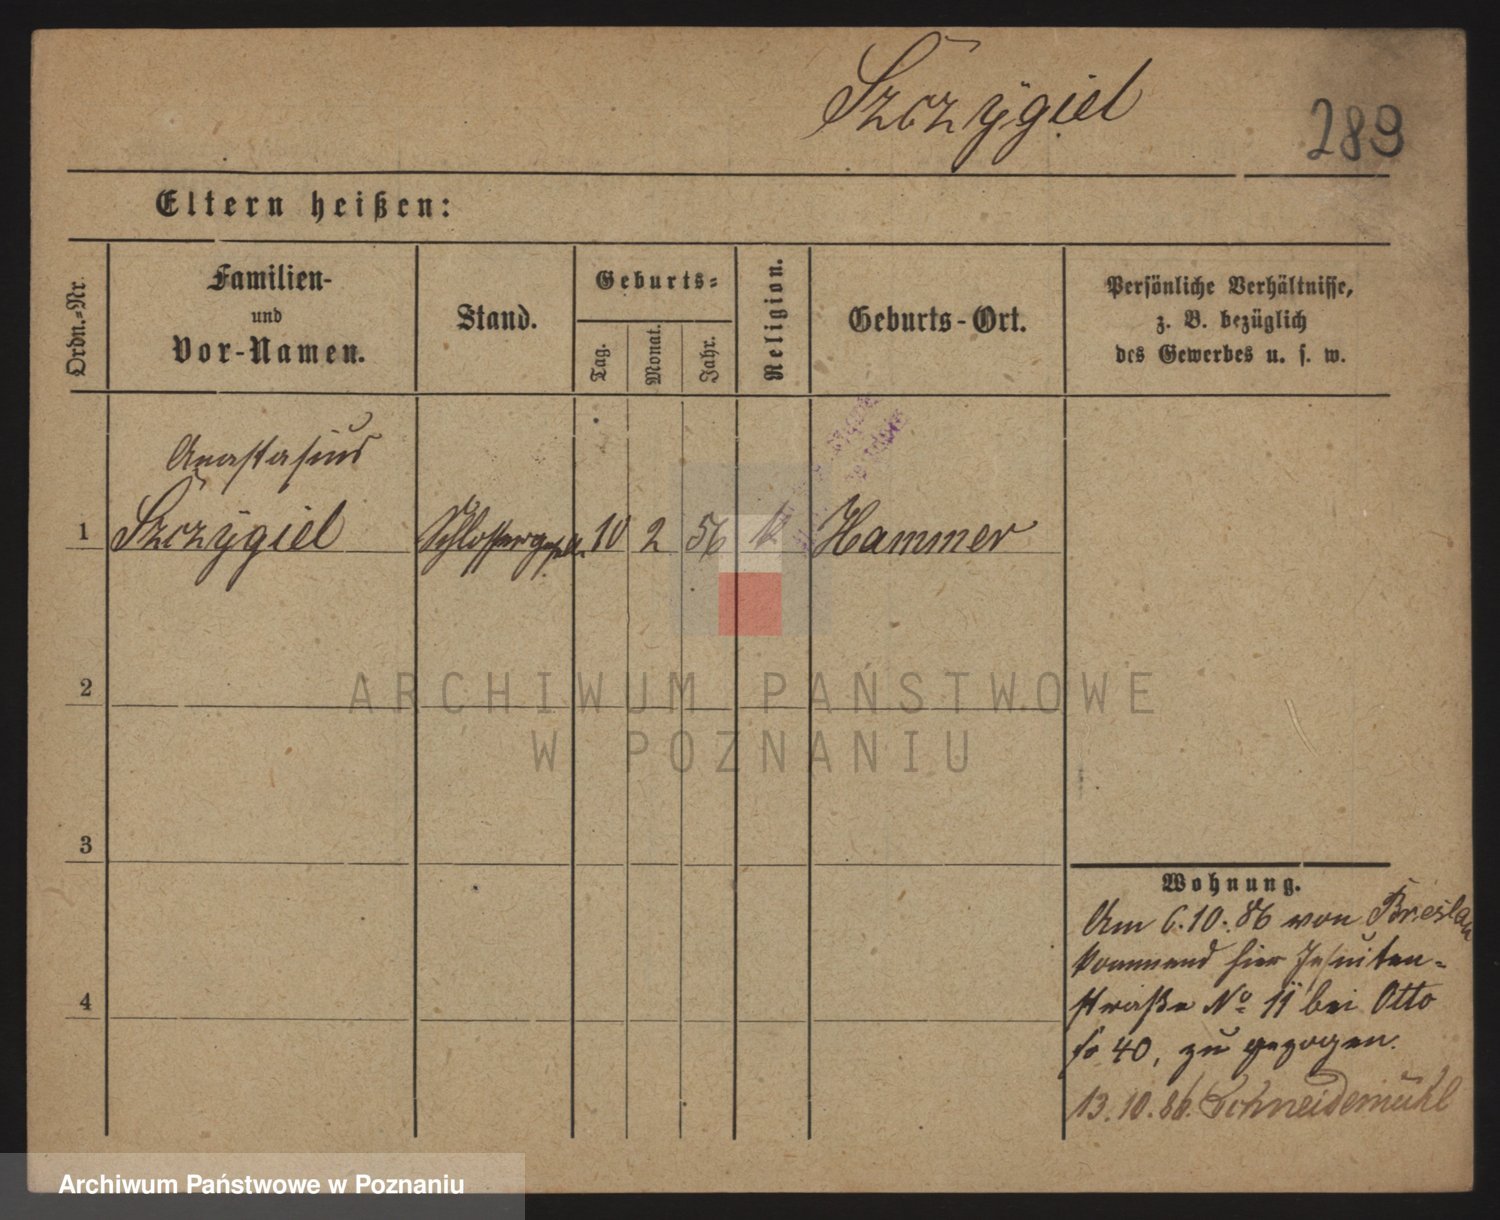 Szczygiel
289
Eltern heißen:
Ordn.-Nr.
Familien-
und
Vor-Namen.
Stand.
Geburts-
Tag.
Monat.
Jahr.
Religion.
Geburts-Ort.
Persönliche Verhältnisse,
z. B. bezüglich
des Gewerbes u. s. w.
Anastasius
1 Szczygiel Schlossergesell. 10 2 56 k Hammer
2
ARCHIWUM PAŃSTWOWE
W POZNANIU
3
Wohnung.
Am 6.10.86 von Breslau
kommend hier Jesuiten-
straße No 11 bei Otto
40, zu gezogen.
4
13.10.86. Schneidemühl
Archiwum Państwowe w Poznaniu